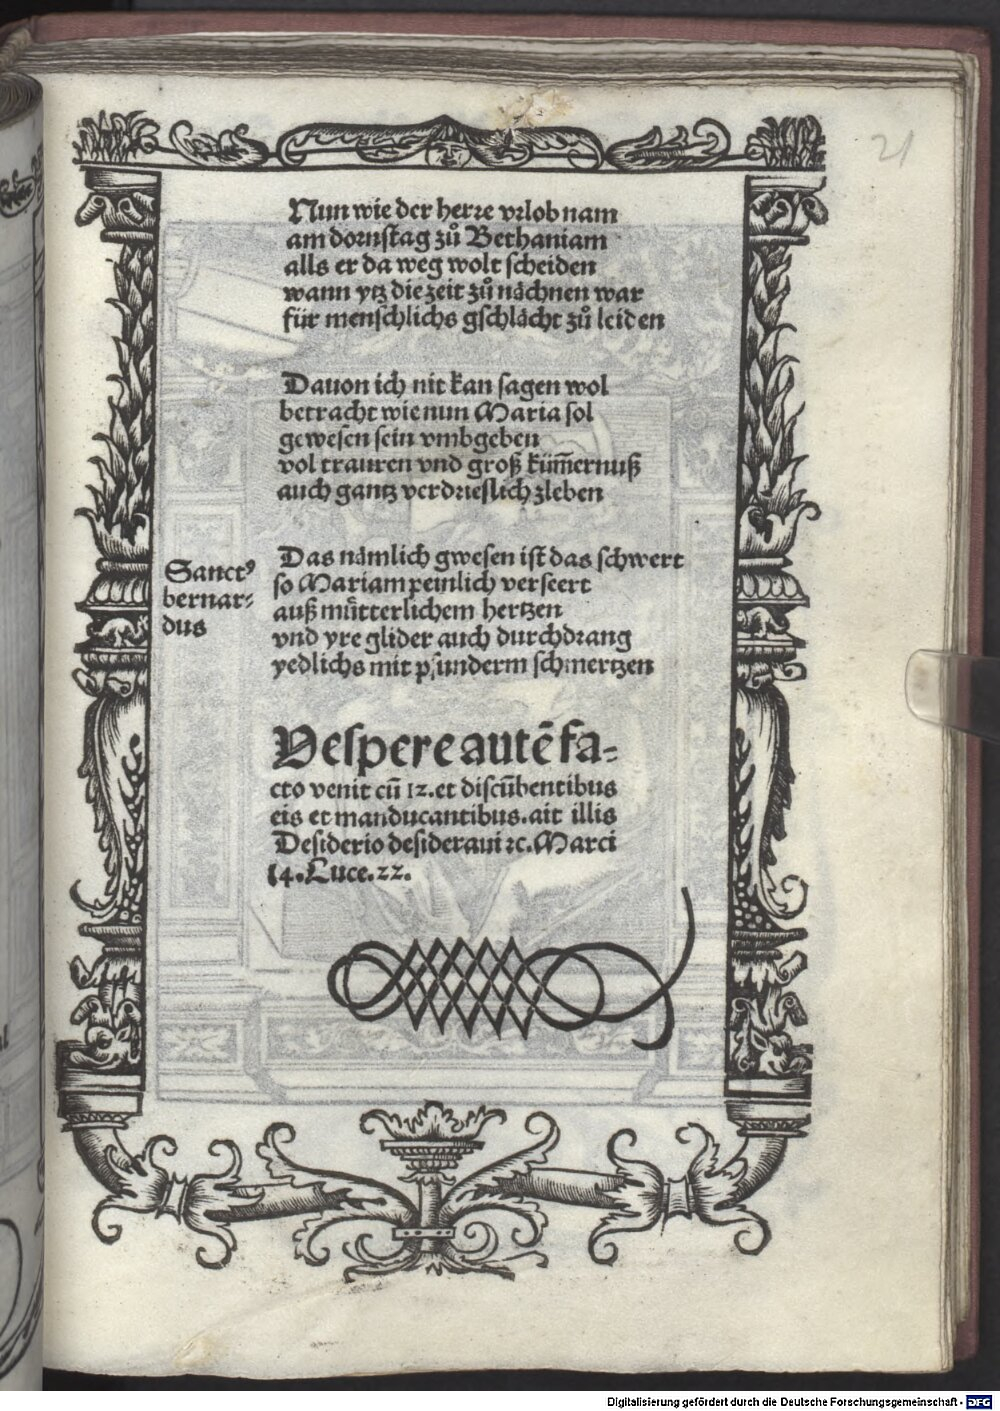 21
Nun wie der herꝛe vꝛlob nam
am doꝛnstag zuͦ Bethaniam
alls er da weg wolt scheiden
wann ytz die zeit zuͦ naͤchnen war
für menschlichs gschlaͤcht zuͦ leiden
Dauon ich nit kan sagen wol
betracht wie nun Maria sol
gewesen sein vmbgeben
vol trauren vnd groß küm̄ernuß
auch gantz verdꝛieslich zleben
Sanctꝰ
bernar⸗
dus
Das naͤmlich gwesen ist das schwert
so Mariam peinlich verseert
auß muͤtterlichem hertzen
vnd yre glider auch durchdꝛang
yedlichs mit psunderm schmertzen
Vespere autē fa⸗
cto venit cū 12. et discūbentibus
eis et manducantibus. ait illis
Desiderio desideraui ⁊c. Marci
14. Luce. 22.
Digitalisierung gefördert durch die Deutsche Forschungsgemeinschaft - DFG